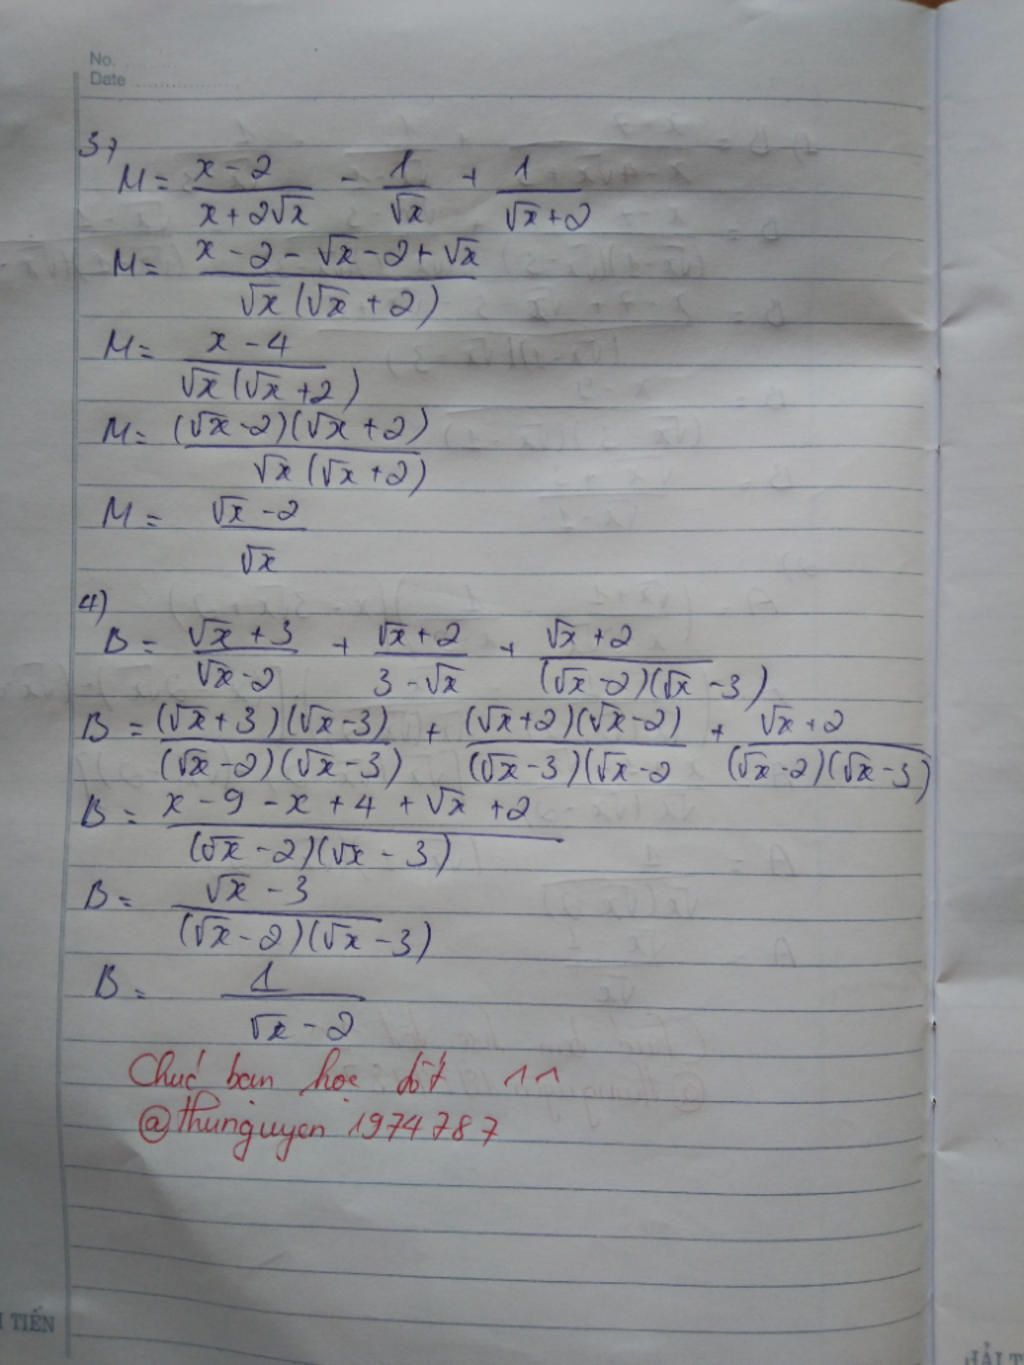 No.
Date
3)
M = \frac{x-2}{x+2\sqrt{x}} - \frac{1}{\sqrt{x}} + \frac{1}{\sqrt{x}+2}
M = \frac{x-2-\sqrt{x}-2+\sqrt{x}}{\sqrt{x}(\sqrt{x}+2)}
M = \frac{x-4}{\sqrt{x}(\sqrt{x}+2)}
M = \frac{(\sqrt{x}-2)(\sqrt{x}+2)}{\sqrt{x}(\sqrt{x}+2)}
M = \frac{\sqrt{x}-2}{\sqrt{x}}
4)
B = \frac{\sqrt{x}+3}{\sqrt{x}-2} + \frac{\sqrt{x}+2}{3-\sqrt{x}} + \frac{\sqrt{x}+2}{(\sqrt{x}-2)(\sqrt{x}-3)}
B = \frac{(\sqrt{x}+3)(\sqrt{x}-3)}{(\sqrt{x}-2)(\sqrt{x}-3)} + \frac{(\sqrt{x}+2)(\sqrt{x}-2)}{(\sqrt{x}-3)(\sqrt{x}-2} + \frac{\sqrt{x}+2}{(\sqrt{x}-2)(\sqrt{x}-3)}
B = \frac{x-9-x+4+\sqrt{x}+2}{(\sqrt{x}-2)(\sqrt{x}-3)}
B = \frac{\sqrt{x}-3}{(\sqrt{x}-2)(\sqrt{x}-3)}
B = \frac{1}{\sqrt{x}-2}
Chúc bạn học tốt ^^
@thunguyen1974787
TIẾN